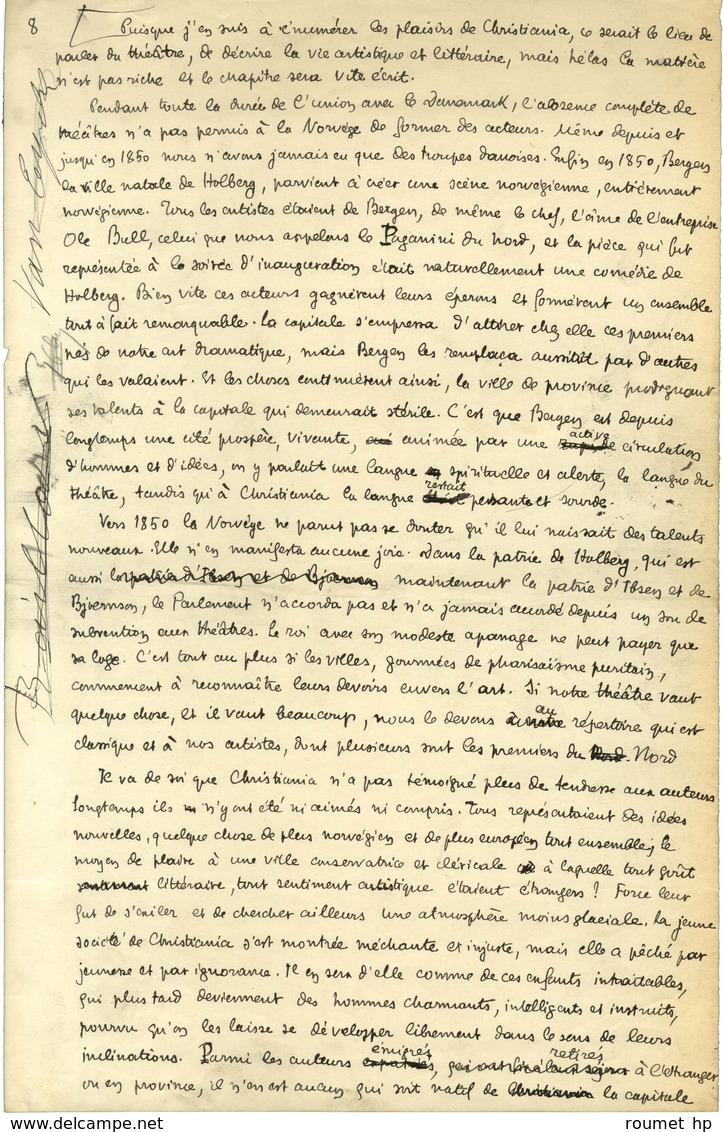 8
Puisque j'en suis à énumérer les plaisirs de Christiania, ce serait le lieu de
parler du théâtre, de décrire la vie artistique et littéraire, mais hélas la matière
n'est pas riche et le chapitre sera vite écrit.
Pendant toute la durée de l'union avec le Danemark, l'absence complète de
théâtres n'a pas permis à la Norvège de former des acteurs. Même depuis et
jusqu'en 1850 nous n'avons jamais eu que des troupes danoises. Enfin en 1850, Bergen
la ville natale de Holberg, parvient à créer une scène norvégienne, entièrement
norvégienne. Tous les artistes étaient de Bergen, de même le chef, l'âme de l'entreprise
Ole Bull, celui que nous appelons le Paganini du Nord, et la pièce qui fut
représentée à la soirée d'inauguration était naturellement une comédie de
Holberg. Bien vite ces acteurs gagnèrent leurs éperons et formèrent un ensemble
tout à fait remarquable. La capitale s'empressa d'attirer chez elle ces premiers
nés de notre art dramatique, mais Bergen les remplaça aussitôt par d'autres
qui les valaient. Et les choses continuèrent ainsi, la ville de province prodiguant
ses talents à la capitale qui demeurait stérile. C'est que Bergen est depuis
longtemps une cité prospère, vivante, animée par une active circulation
d'hommes et d'idées, on y parlait une langue spirituelle et alerte, la langue du
théâtre, tandis qu'à Christiania la langue restait pesante et sourde.
Vers 1850 la Norvège ne parut pas se douter qu'il lui naissait des talents
nouveaux. Elle n'en manifesta aucune joie. Dans la patrie de Holberg, qui est
aussi la patrie d'Ibsen et de Bjœrnson maintenant la patrie d'Ibsen et de
Bjœrnson, le Parlement n'accorda pas et n'a jamais accordé depuis un sou de
subvention aux théâtres. Le roi avec son modeste apanage ne peut payer que
sa loge. C'est tout au plus si les villes, gourmées de pharisaïsme puritain,
commencent à reconnaître leurs devoirs envers l'art. Si notre théâtre vaut
quelque chose, et il vaut beaucoup, nous le devons à notre au répertoire qui est
classique et à nos artistes, dont plusieurs sont les premiers du Nord. Nord
Il va de soi que Christiania n'a pas témoigné plus de tendresse aux auteurs
longtemps ils n'y ont été ni aimés ni compris. Tous représentaient des idées
nouvelles, quelque chose de plus norvégien et de plus européen tout ensemble; le
moyen de plaire à une ville conservatrice et cléricale à laquelle tout goût
sentiment littéraire, tout sentiment artistique étaient étrangers! Force leur
fut de s'exiler et de chercher ailleurs une atmosphère moins glaciale. La jeune
société de Christiania s'est montrée méchante et injuste, mais elle a péché par
jeunesse et par ignorance. Il en sera d'elle comme de ces enfants intraitables,
qui plus tard deviennent des hommes charmants, intelligents et instruits,
pourvu qu'on les laisse se développer librement dans le sens de leurs
inclinations. Parmi les auteurs expatriés émigrés, retirés à l'étranger
ou en province, il n'en est aucun qui soit natif de Christiania la capitale
roumet hp